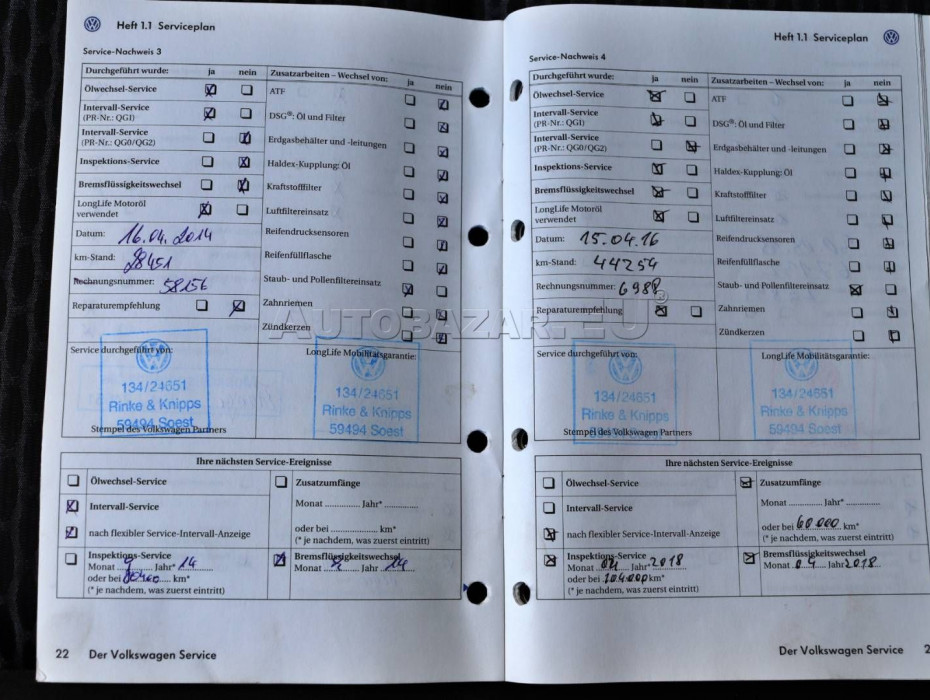 Heft 1.1 Serviceplan
Service-Nachweis 3
Durchgeführt wurde: ja nein
Ölwechsel-Service
Intervall-Service
(PR-Nr.: QGI)
Intervall-Service
(PR-Nr.: QG0/QG2)
Inspektions-Service
Bremsflüssigkeitswechsel
LongLife Motoröl
verwendet
Datum: 16.04.2014
km-Stand: 28451
Rechnungsnummer: 58156
Reparaturempfehlung
Zusatzarbeiten – Wechsel von: ja nein
ATF
DSG®: Öl und Filter
Erdgasbehälter und -leitungen
Haldex-Kupplung: Öl
Kraftstofffilter
Luftfiltereinsatz
Reifendrucksensoren
Reifenfüllflasche
Staub- und Pollenfiltereinsatz
Zahnriemen
Zündkerzen
Service durchgeführt von:
134/24651
Rinke & Knipps
59494 Soest
Stempel des Volkswagen Partners
LongLife Mobilitätsgarantie:
134/24651
Rinke & Knipps
59494 Soest
Ihre nächsten Service-Ereignisse
Ölwechsel-Service
Intervall-Service
nach flexibler Service-Intervall-Anzeige
Inspektions-Service
Monat Jahr* 14
oder bei km*
(* je nachdem, was zuerst eintritt)
Zusatzumfänge
Monat Jahr*
oder bei km*
(* je nachdem, was zuerst eintritt)
Bremsflüssigkeitswechsel
Monat Jahr 14
22 Der Volkswagen Service
Heft 1.1 Serviceplan
Service-Nachweis 4
Durchgeführt wurde: ja nein
Ölwechsel-Service
Intervall-Service
(PR-Nr.: QGI)
Intervall-Service
(PR-Nr.: QG0/QG2)
Inspektions-Service
Bremsflüssigkeitswechsel
LongLife Motoröl
verwendet
Datum: 15.04.16
km-Stand: 44254
Rechnungsnummer: 6988
Reparaturempfehlung
Zusatzarbeiten – Wechsel von: ja nein
ATF
DSG®: Öl und Filter
Erdgasbehälter und -leitungen
Haldex-Kupplung: Öl
Kraftstofffilter
Luftfiltereinsatz
Reifendrucksensoren
Reifenfüllflasche
Staub- und Pollenfiltereinsatz
Zahnriemen
Zündkerzen
Service durchgeführt von:
134/24651
Rinke & Knipps
59494 Soest
Stempel des Volkswagen Partners
LongLife Mobilitätsgarantie:
134/24651
Rinke & Knipps
59494 Soest
Ihre nächsten Service-Ereignisse
Ölwechsel-Service
Intervall-Service
nach flexibler Service-Intervall-Anzeige
Inspektions-Service
Monat 04 Jahr 2018
oder bei 104000 km*
(* je nachdem, was zuerst eintritt)
Zusatzumfänge
Monat Jahr*
oder bei 60000 km*
(* je nachdem, was zuerst eintritt)
Bremsflüssigkeitswechsel
Monat 04 Jahr 2018
Der Volkswagen Service
AUTOBAZAR.EU®